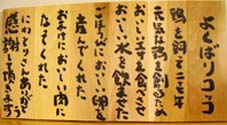 よくばりコッコ
鶏を飼って二七年
元気な鶏を飼うため
おいしい玉を食べさせ
おいしい水を飲ませた
ごほうびにおいしい卵を
産んでくれた
おまけにおいしい肉に
なってくれた
にわとりさんありがとう
感謝して頂きます